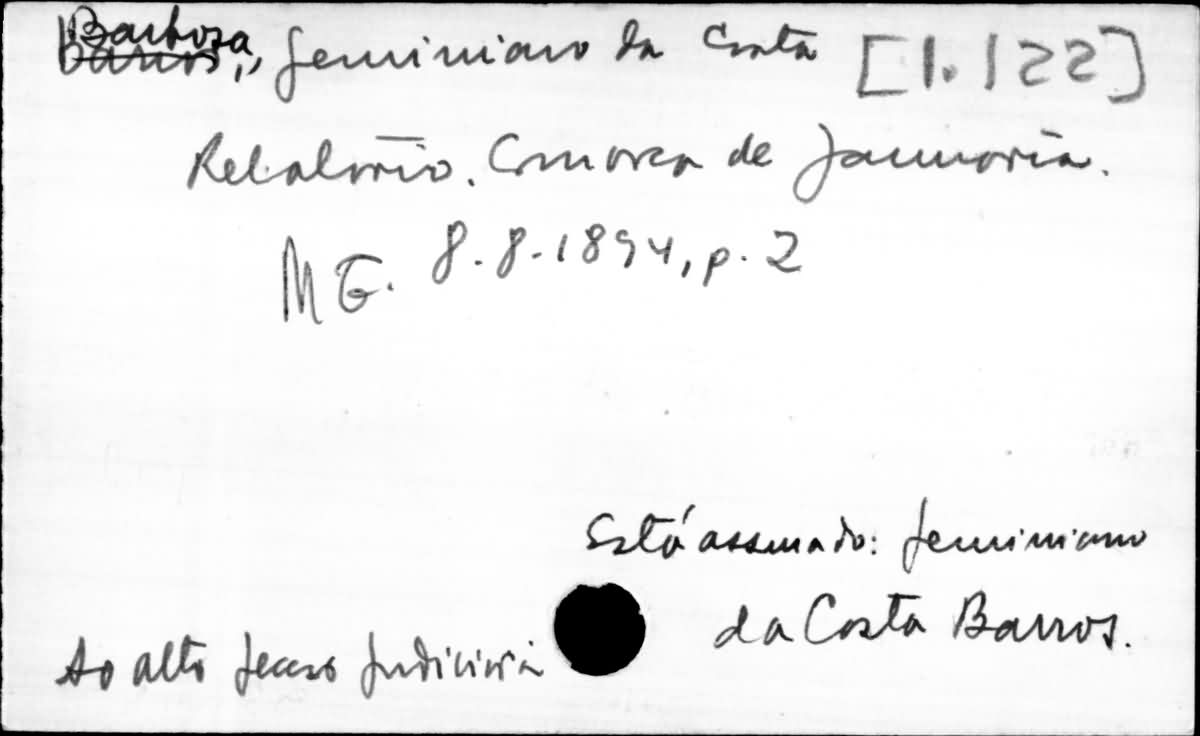 Barbosa
Barros, Geminiano da Costa [1.122]
Relatório. Comarca de Januaria.
MG. 8.8.1894, p. 2
Está assinado: Geminiano
da Costa Barros.
Ao alto Judiciaria